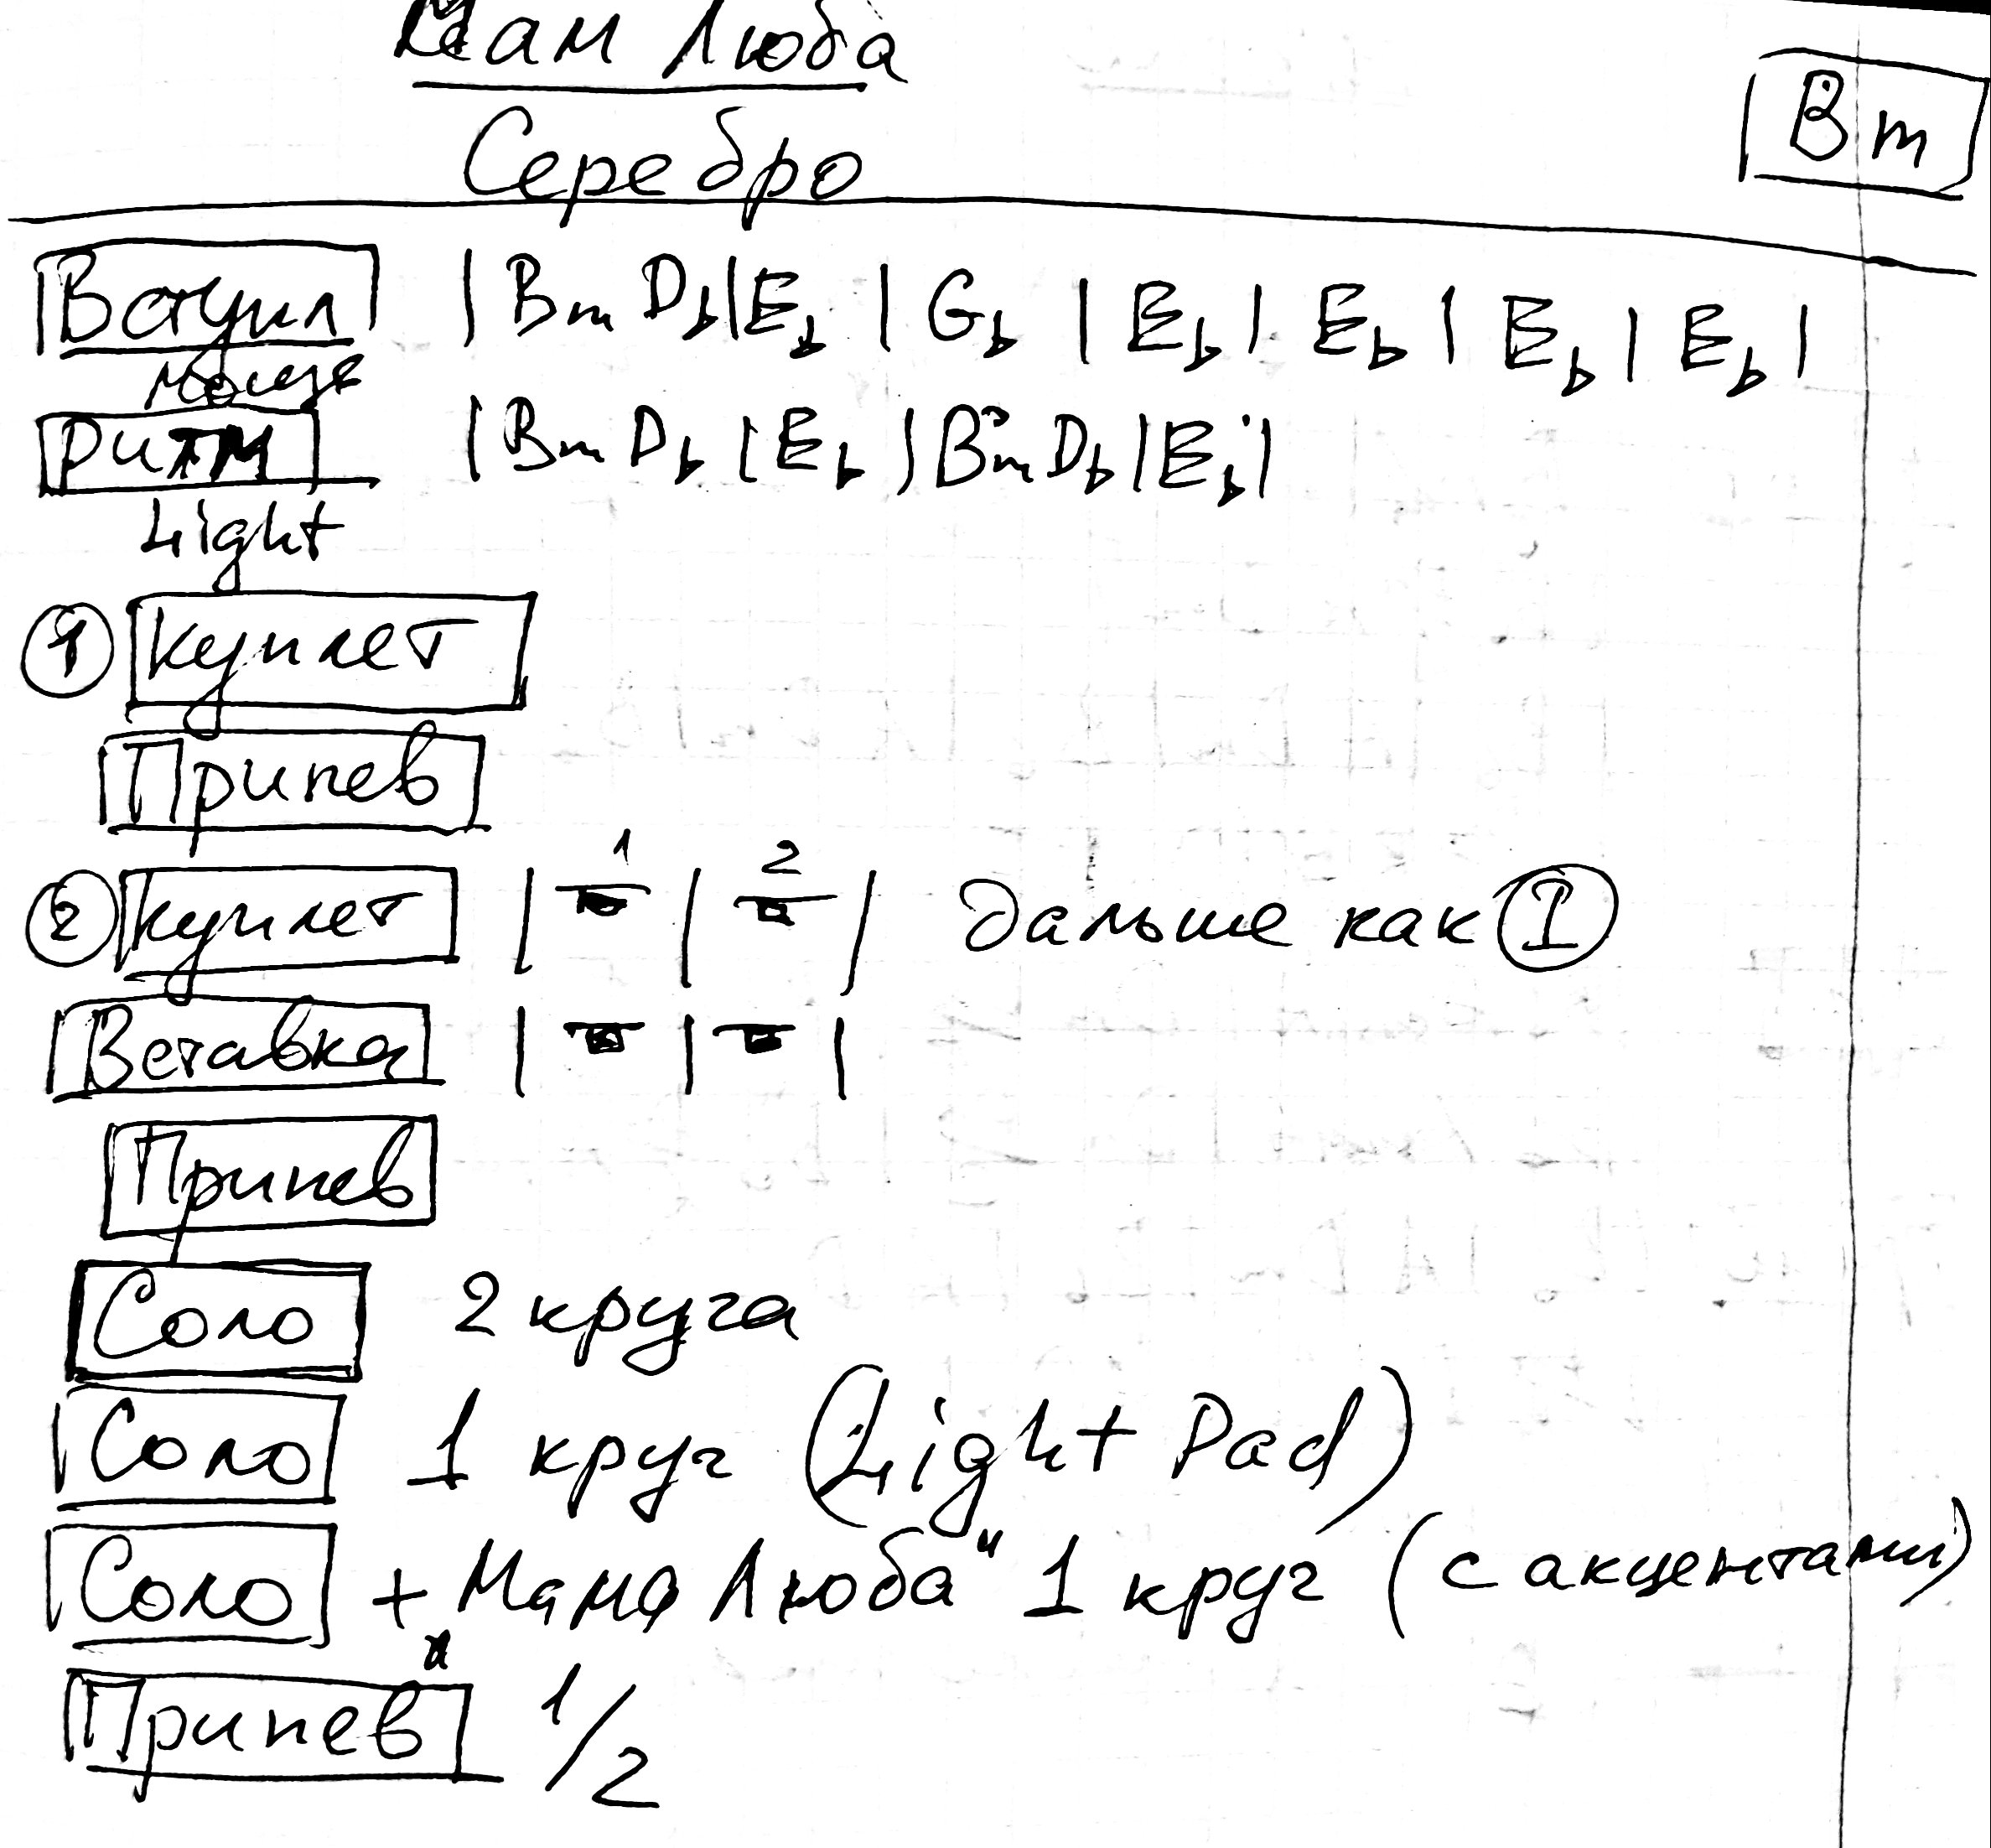 Мам Люба
Серебро
Bm
Вступл | Bm Db | Eb | Gb | Eb | Eb | Eb | Eb |
моще
Ритм | Bm Db | Eb | Bm Db | Eb |
Light
1 Куплет
Припев
2 Куплет | 1 | 2 | дальше как I
Вставка | | |
Припев
Соло 2 круга
Соло 1 круг (Light Pad)
Соло + Мама Люба" 1 круг (с акцентами)
Припев 1/2